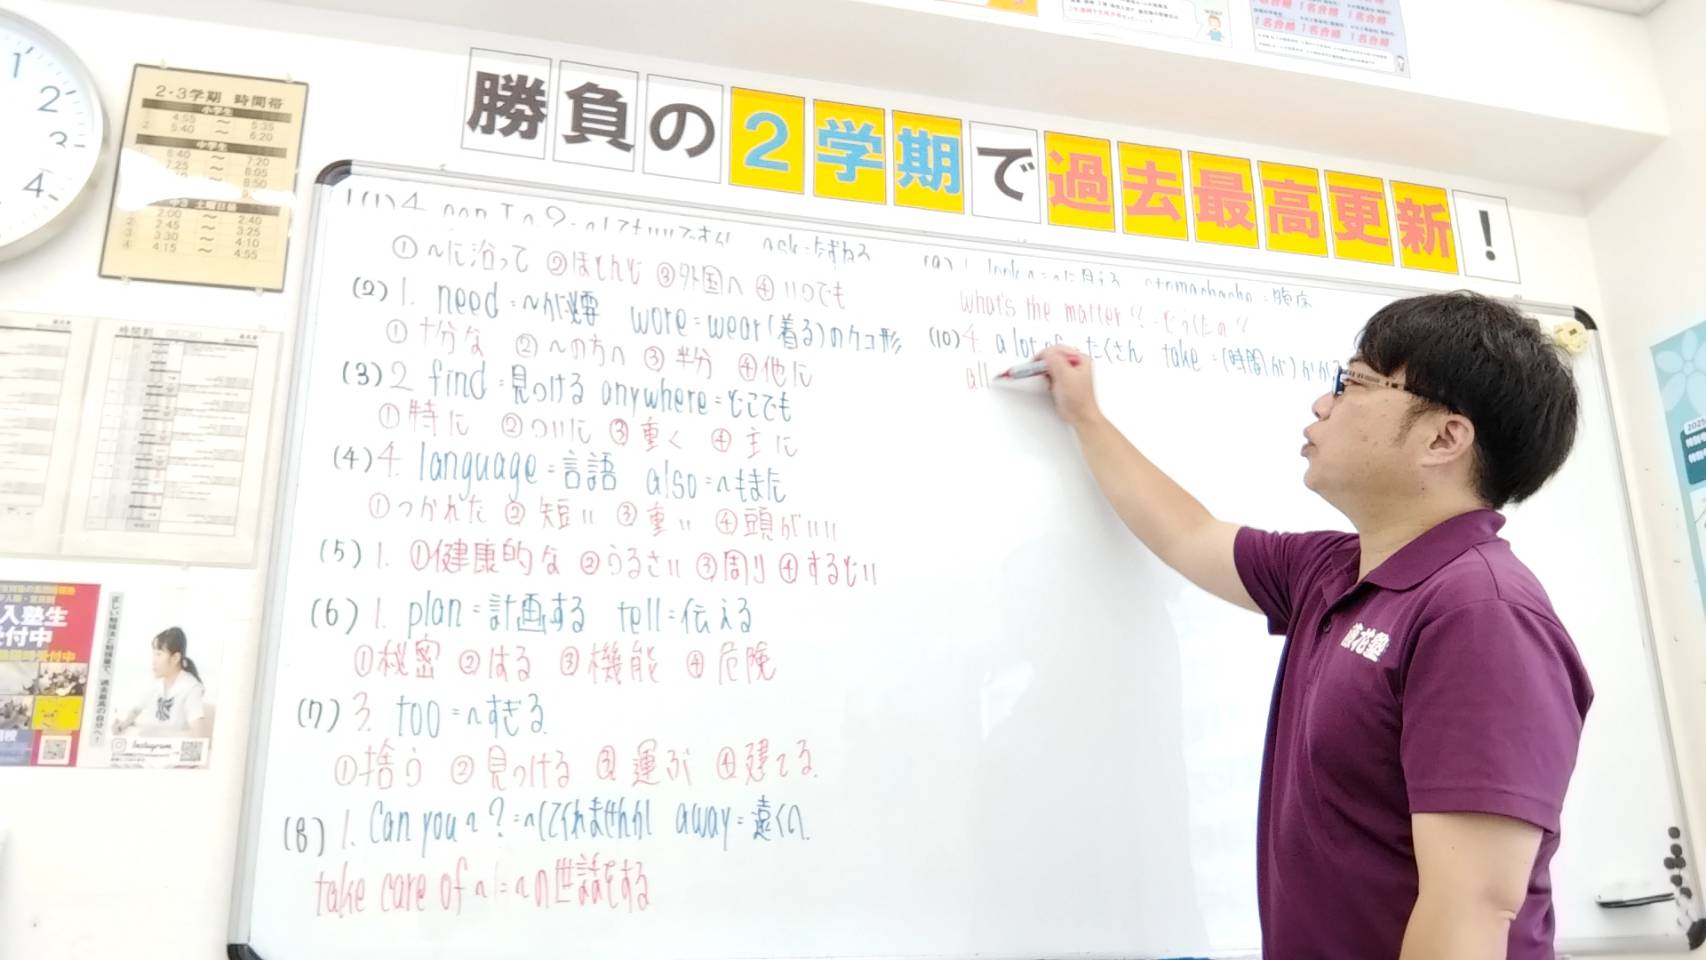 勝負の2学期で過去最高更新!
1
2
3
4
2・3学期 時間帯
小学生
4:55 ～ 5:35
5:40 ～ 6:20
中学生
6:40 ～ 7:20
7:25 ～ 8:05
～ 8:50
中3 土曜日昼
2:00 ～ 2:40
2:45 ～ 3:25
3:30 ～ 4:10
4:15 ～ 4:55
時間割
入塾生
受付中
Instagram
1(1)4. can I ~?=~してもいいですか ask=たずねる
①~に沿って ②ほとんど ③外国へ ④いつでも
(2)1. need=~が必要 wore=wear(着る)のカコ形
①十分な ②~の方へ ③半分 ④他に
(3)2 find=見つける anywhere=どこでも
①特に ②ついに ③重く ④主に
(4)4. language=言語 also=~もまた
①つかれた ②短い ③重い ④頭がいい
(5)1. ①健康的な ②うるさい ③周り ④するどい
(6)1. plan=計画する tell=伝える
①秘密 ②はる ③機能 ④危険
(7)3. too=~すぎる
①捨う ②見つける ③運ぶ ④建てる
(8)1. Can you ~?=~してくれませんか away=遠くへ
take care of ~=~の世話をする
(9)1. look ~=~に見える stomachache=腹痛
what's the matter?=どうしたの?
(10)4. a lot of=たくさん take=(時間が)かかる
all
薫花塾
1名合格 1名合格 1名合格
1名合格 1名合格 1名合格